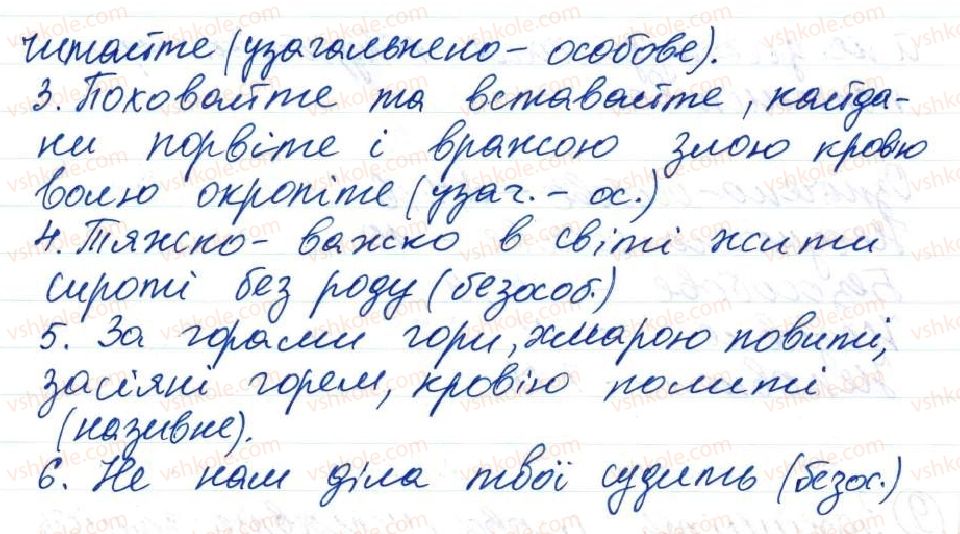 читайте (узагальнено - особове).
3. Поховайте та вставайте, кайда-
ни порвіте і вражою злою кровю
волю окропіте (узаг. - ос.)
4. Тяжско - важко в світі жити
сироті без роду (безособ.)
5. За горами гори, хмарою повиті,
засіяні горем, кровію политі
(називне).
6. Не нам діла твої судить (безос.)